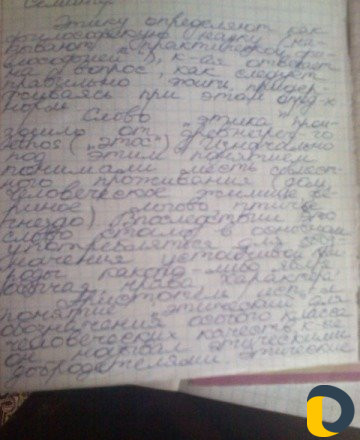 Семинар
Этику определяют как
философскую науку, на-
зывают „практической фи-
лософией", к-ая отвечает
на вопрос, как следует
правильно жить, придер-
живаясь при этом опред-х
норм.
Слово „этика" прои-
зошло от древнегреч-го
ethos („этос"). Изначально
под этим понятием
понимали место совмест-
ного проживания (дом,
человеческое жилище, зве-
риное логово, птичье
гнездо). Впоследствии это
слово стало в основном
употребляться для обо-
значения устойчивой при-
роды какого-либо явл.,
обычая, нрава, характера.
Аристотель
понятие „этический" для
обозначения особого класса
человеческих качеств, к-е
он назвал этическими
добродетелями